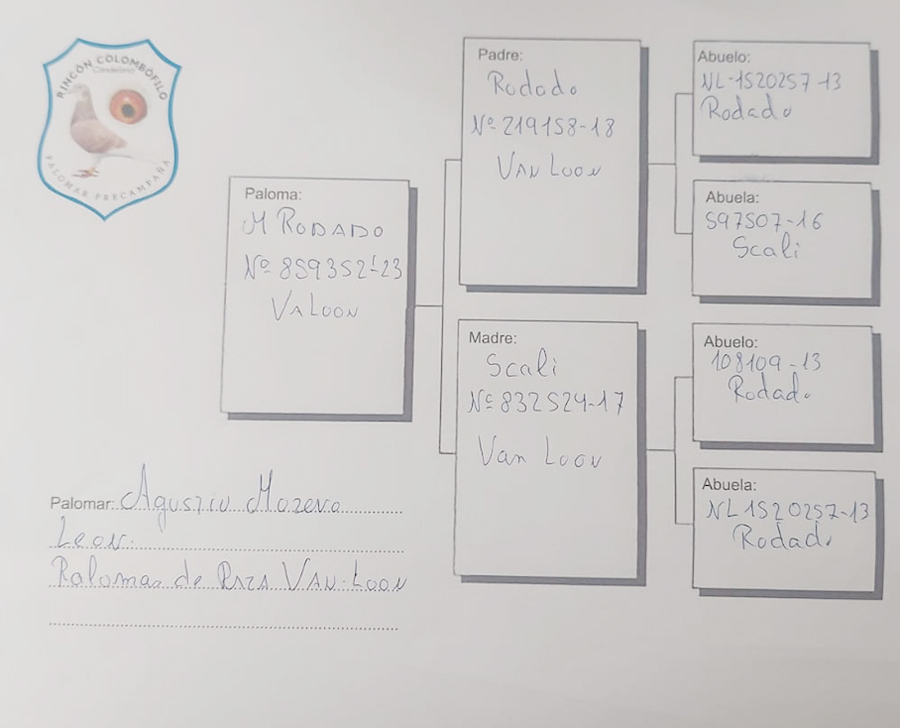 RINCÓN COLOMBÓFILO
Candelario
PALOMAR PRECAMPAÑA
Paloma:
M RODADO
Nº 859352-23
VALOON
Padre:
Rodado
Nº 219158-18
VAN LOON
Madre:
Scali
Nº 832524-17
Van Loon
Abuelo:
NL-1520257-13
Rodado
Abuela:
597507-16
Scali
Abuelo:
108109-13
Rodado
Abuela:
NL 1520257-13
Rodado
Palomar: Agustin Moreno
Leon.
Palomar de RAZA VAN-LOON